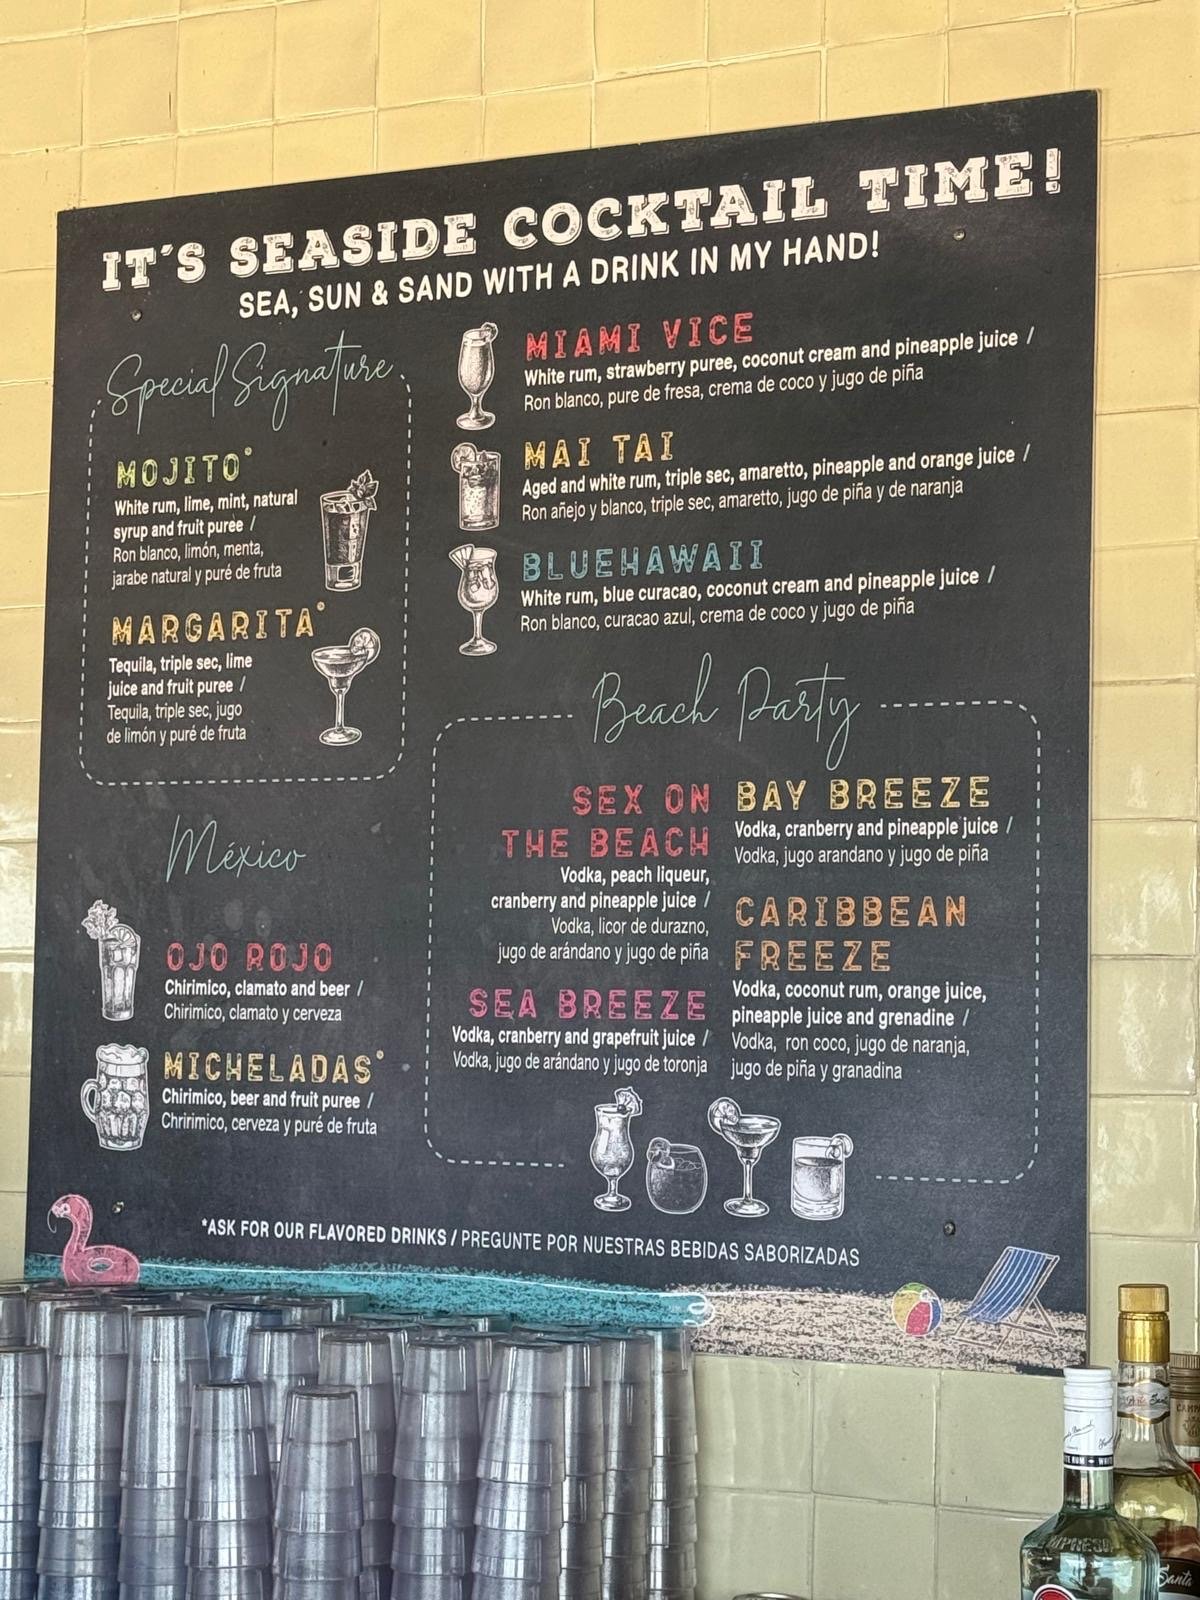 IT'S SEASIDE COCKTAIL TIME!
SEA, SUN & SAND WITH A DRINK IN MY HAND!
Special Signature
MOJITO*
White rum, lime, mint, natural
syrup and fruit puree /
Ron blanco, limón, menta,
jarabe natural y puré de fruta
MARGARITA*
Tequila, triple sec, lime
juice and fruit puree /
Tequila, triple sec, jugo
de limón y puré de fruta
México
OJO ROJO
Chirimico, clamato and beer /
Chirimico, clamato y cerveza
MICHELADAS*
Chirimico, beer and fruit puree /
Chririmico, cerveza y puré de fruta
MIAMI VICE
White rum, strawberry puree, coconut cream and pineapple juice /
Ron blanco, pure de fresa, crema de coco y jugo de piña
MAI TAI
Aged and white rum, triple sec, amaretto, pineapple and orange juice /
Ron añejo y blanco, triple sec, amaretto, jugo de piña y de naranja
BLUEHAWAII
White rum, blue curacao, coconut cream and pineapple juice /
Ron blanco, curacao azul, crema de coco y jugo de piña
Beach Party
SEX ON
THE BEACH
Vodka, peach liqueur,
cranberry and pineapple juice /
Vodka, licor de durazno,
jugo de arándano y jugo de piña
SEA BREEZE
Vodka, cranberry and grapefruit juice /
Vodka, jugo de arándano y jugo de toronja
BAY BREEZE
Vodka, cranberry and pineapple juice /
Vodka, jugo arandano y jugo de piña
CARIBBEAN
FREEZE
Vodka, coconut rum, orange juice,
pineapple juice and grenadine /
Vodka, ron coco, jugo de naranja,
jugo de piña y granadina
*ASK FOR OUR FLAVORED DRINKS / PREGUNTE POR NUESTRAS BEBIDAS SABORIZADAS
Santa